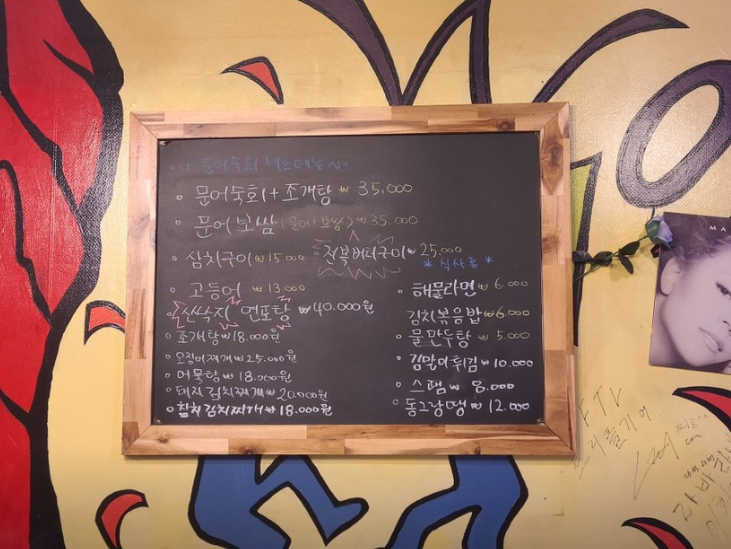 문어숙회
문어숙회+조개탕 ₩ 35,000
문어보쌈 (문어+보쌈) ₩ 35.000
삼치구이 ₩ 15000
전복버터구이 ₩ 25,000
* 식사류 *
고등어 ₩ 13.000
해물라면 ₩ 6.000
산낙지 연포탕 ₩40.000원
김치볶음밥 ₩6.000
조개탕 ₩18.000원
물만두탕 ₩ 5.000
오징어찌개 ₩25.000원
김말이튀김 ₩10.000
어묵탕 ₩ 18.000원
스팸 ₩ 8.000
돼지김치찌개 ₩20.000원
동그랑땡 ₩ 12.000
참치김치찌개 ₩18.000원
MA